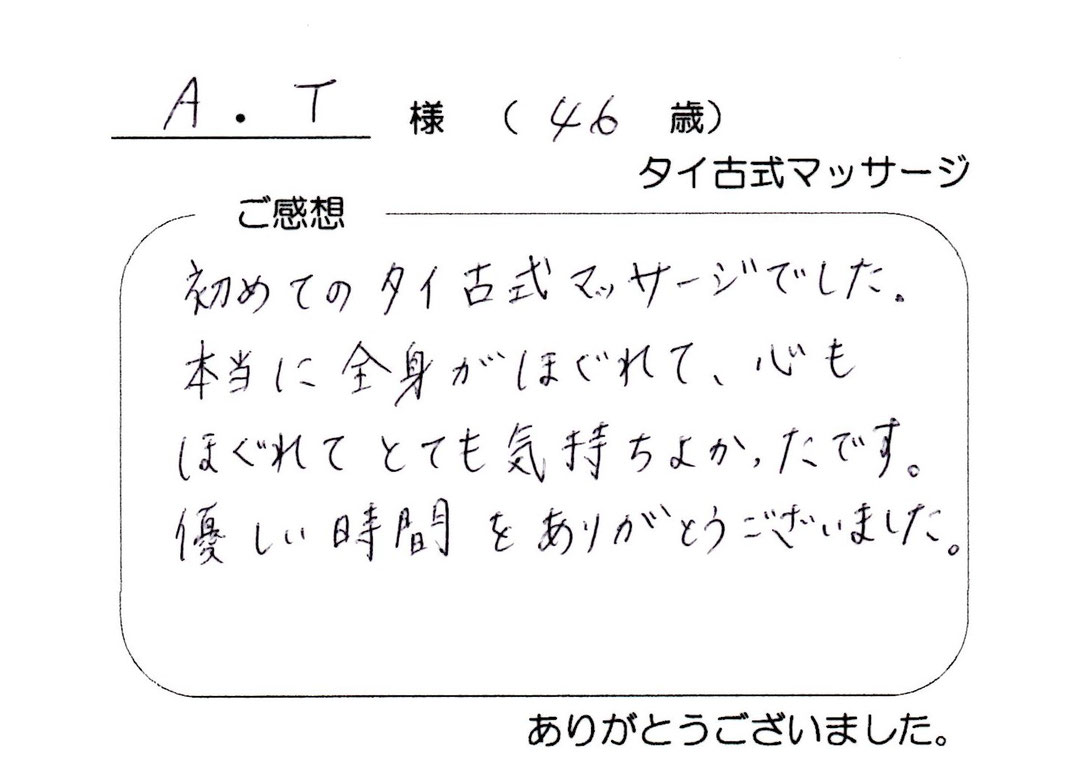 A.T 様 (46 歳)
タイ古式マッサージ
ご感想
初めてのタイ古式マッサージでした。
本当に全身がほぐれて、心も
ほぐれてとても気持ちよかったです。
優しい時間をありがとうございました。
ありがとうございました。